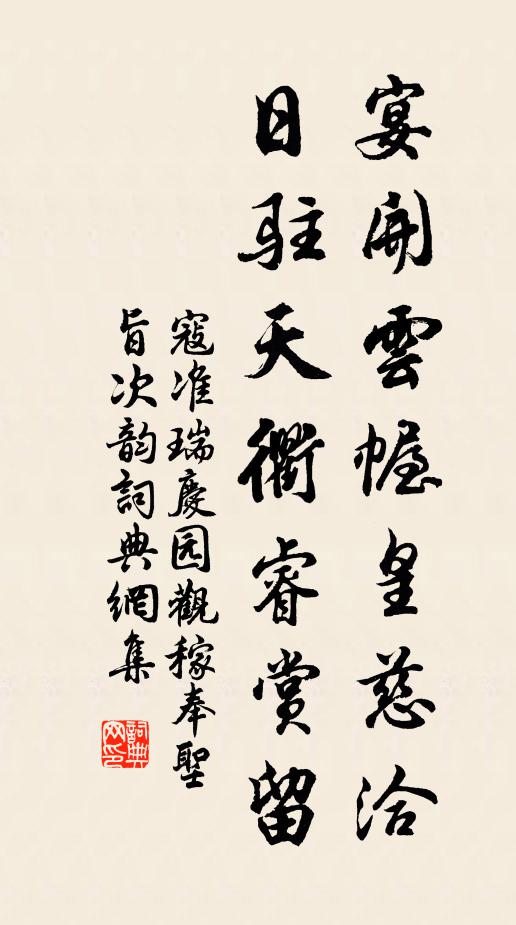 宴開雲幄皇慈洽
日駐天衢睿賞留
寇准瑞慶园觀稼奉聖
旨次韵詞典網集
詞典
网印